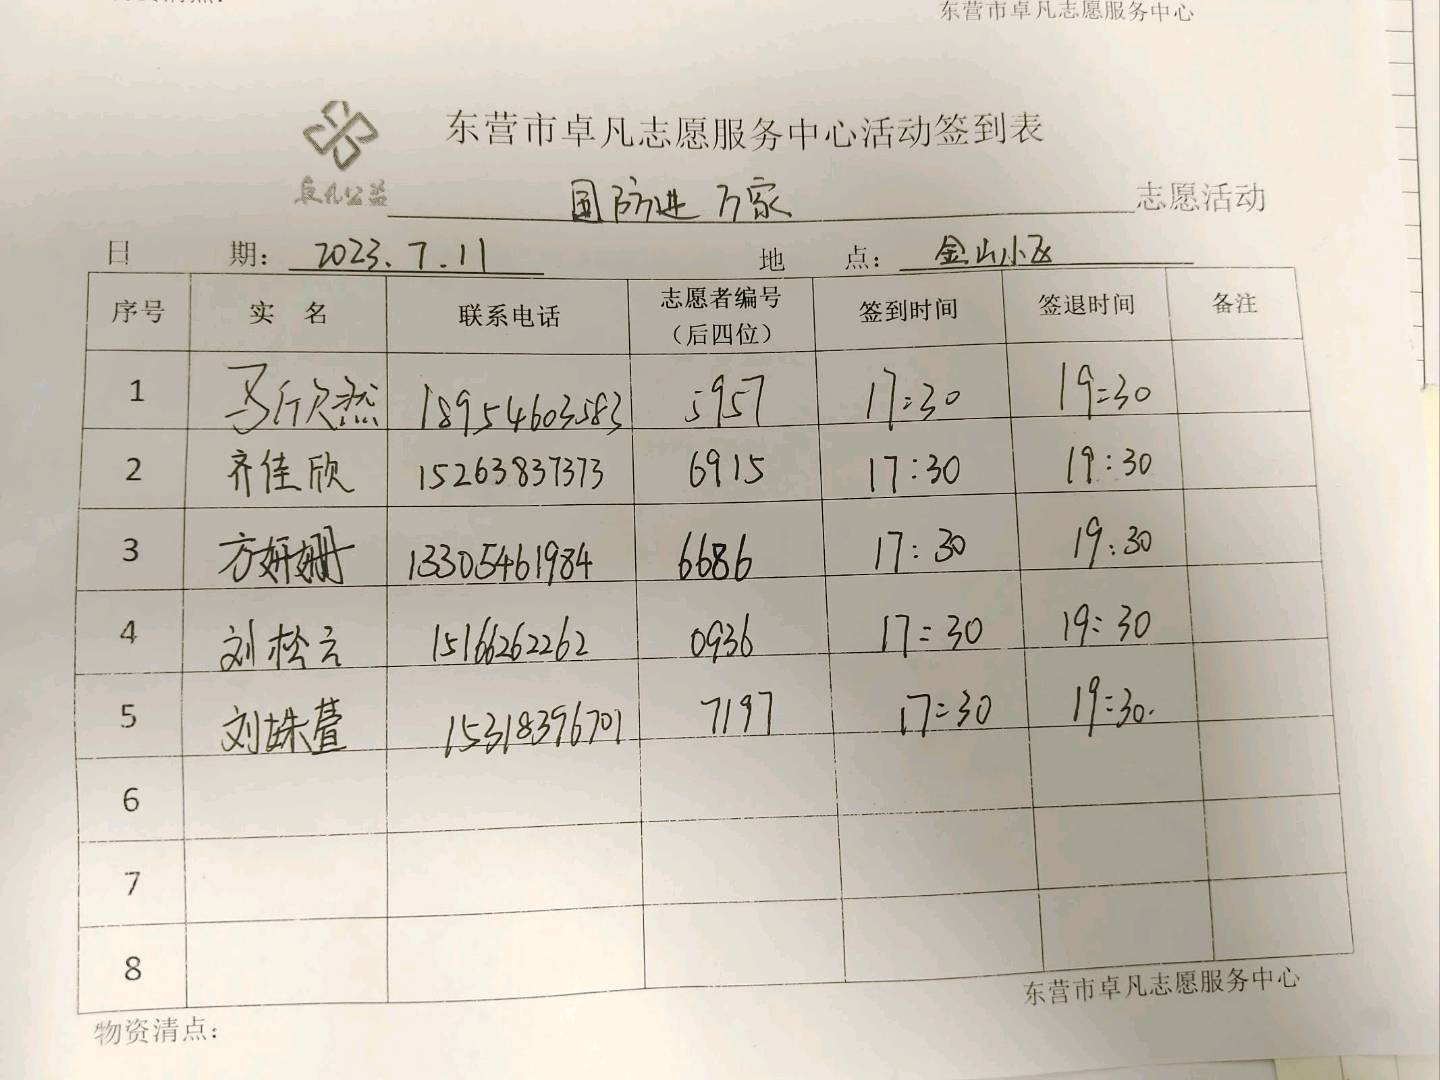 东营市卓凡志愿服务中心
东营市卓凡志愿服务中心活动签到表
卓凡公益
国防进万家 志愿活动
日 期：2023.7.11 地 点：金山小区
序号 实 名 联系电话 志愿者编号（后四位） 签到时间 签退时间 备注
1 马欣然 18954603583 5957 17:30 19:30
2 齐佳欣 15263837373 6915 17:30 19:30
3 方妍姗 13305461984 6686 17:30 19:30
4 刘松云 15166262262 0936 17:30 19:30
5 刘姝萱 15318396701 7197 17:30 19:30.
6
7
8
东营市卓凡志愿服务中心
物资清点：